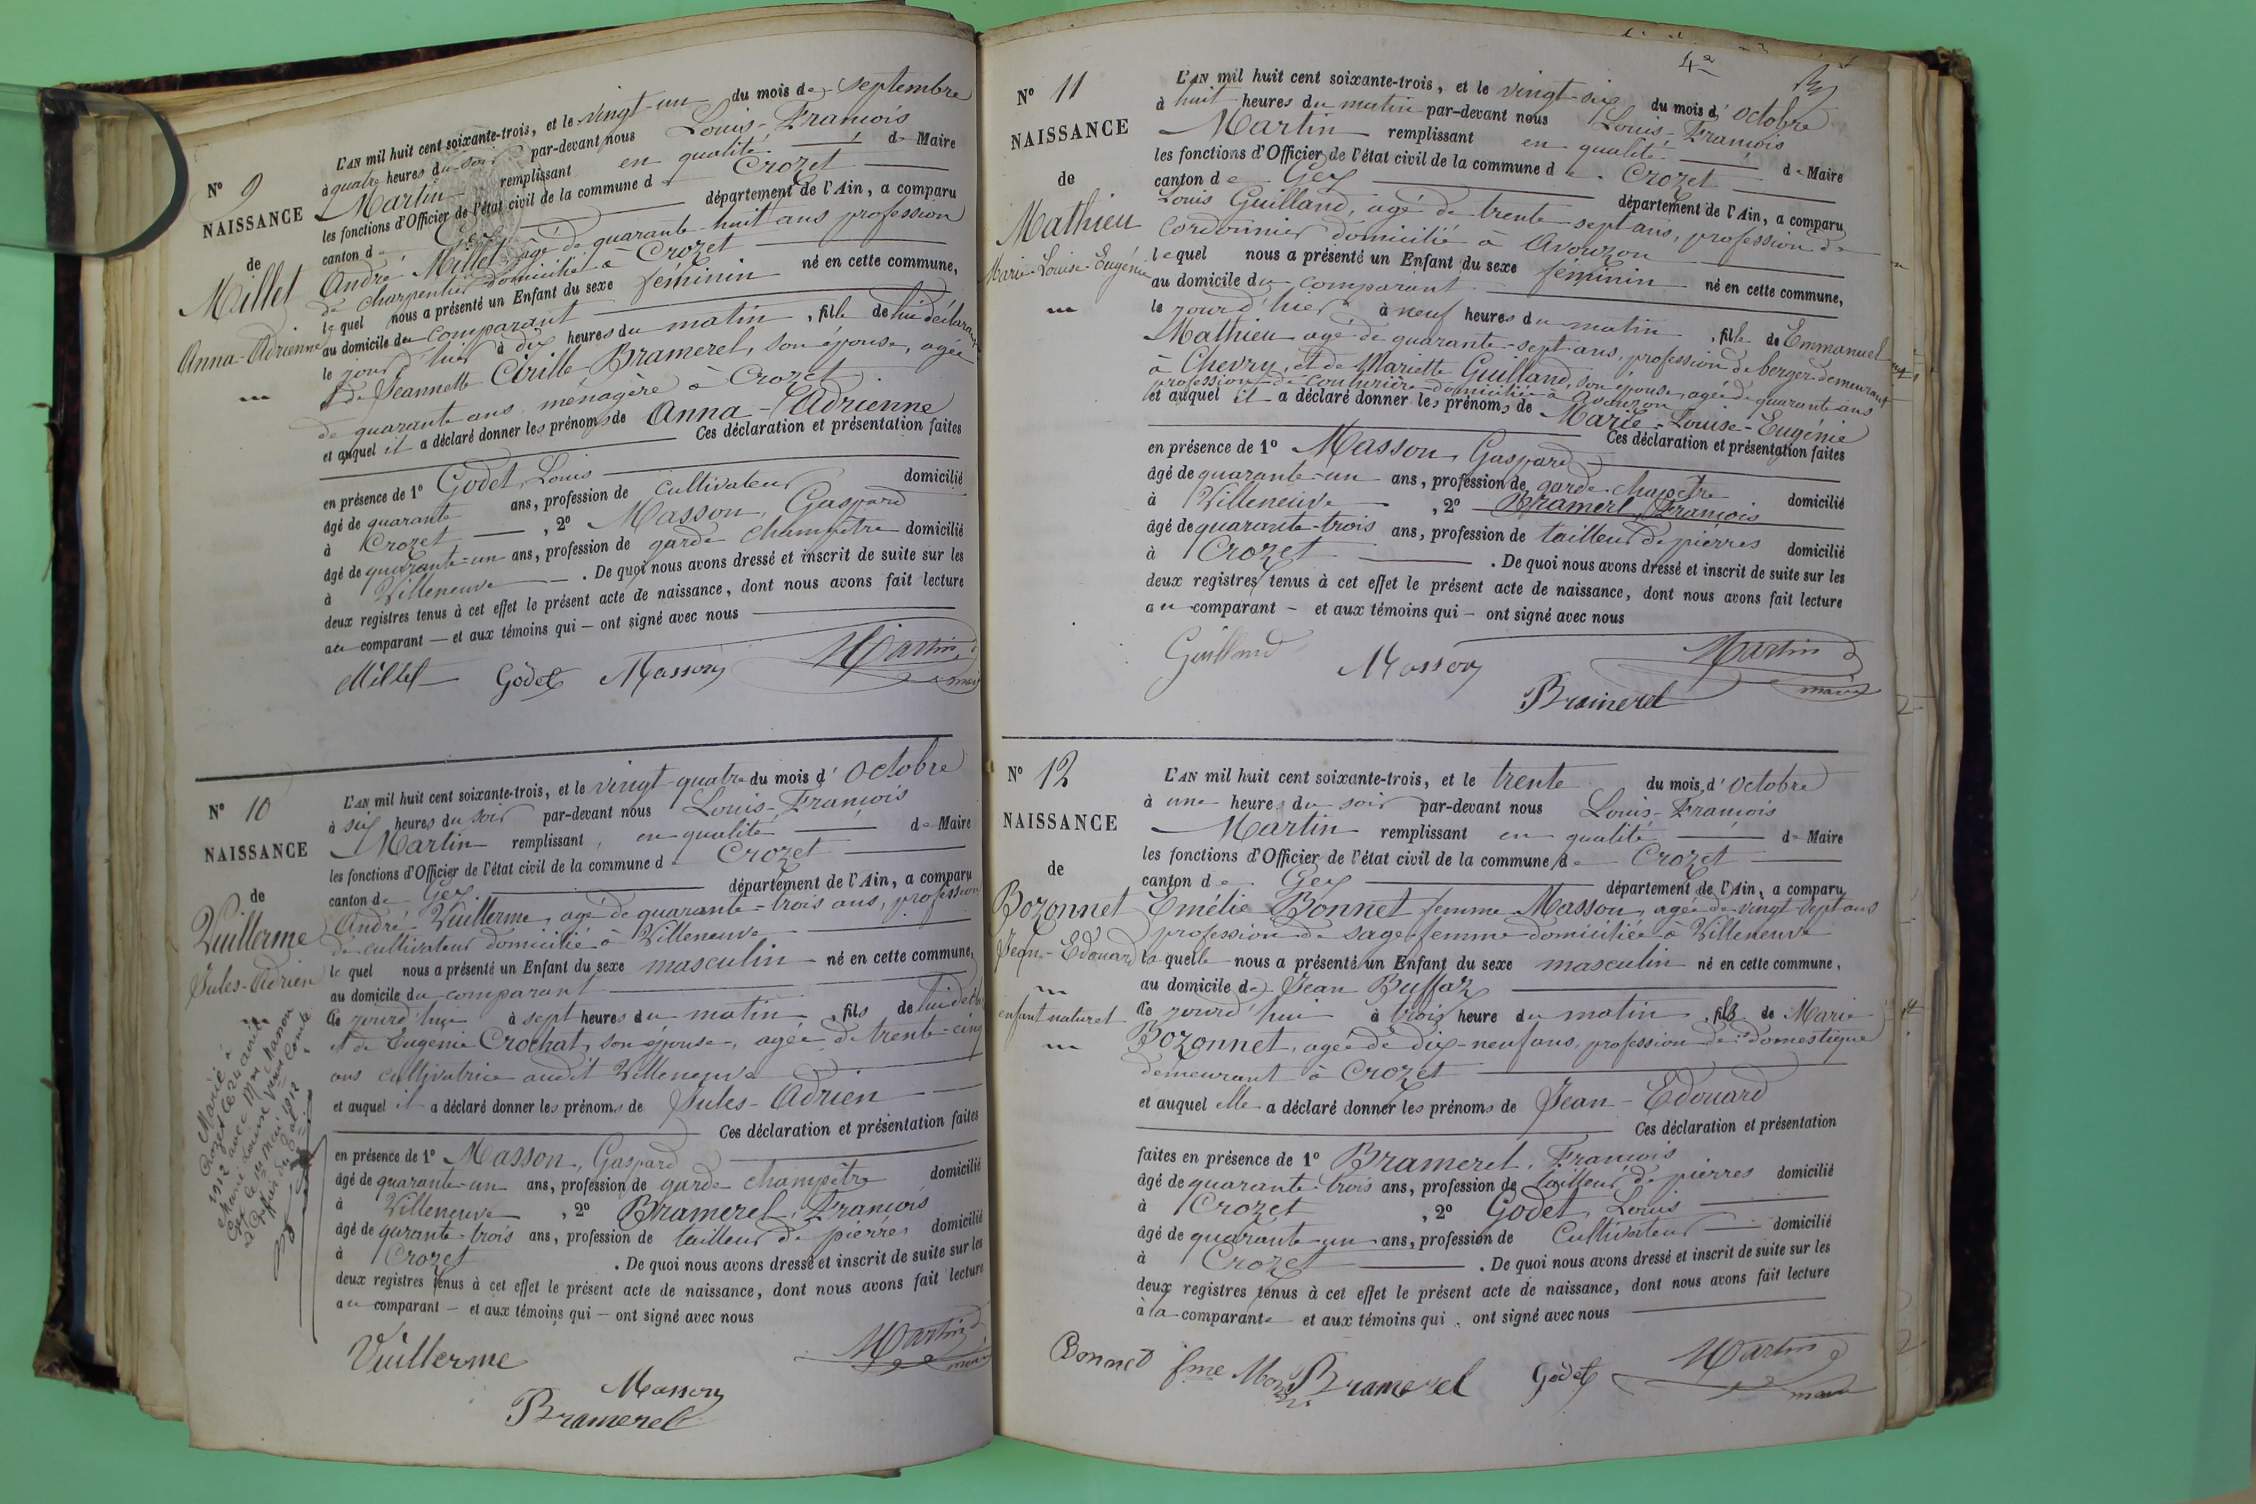 N° 9
NAISSANCE
de
Millet
Anna-Adrienne
L'AN mil huit cent soixante-trois, et le vingt-un du mois de septembre
à quatre heures du soir par-devant nous Louis-François
Martin remplissant en qualité de Maire
les fonctions d'Officier de l'état civil de la commune de Crozet
canton de Gex département de l'Ain, a comparu
André Millet, âgé de quarante-huit ans profession
de charpentier domicilié à Crozet
lequel nous a présenté un Enfant du sexe féminin né en cette commune,
au domicile du comparant
le jour d'hier à dix heures du matin, fille de lui déclarant
& de Jeannette Cirille Bramerel, son épouse, agée
de quarante ans, ménagère à Crozet
et auquel il a déclaré donner les prénoms de Anna-Adrienne
Ces déclaration et présentation faites
en présence de 1° Godet, Louis
âgé de quarante ans, profession de cultivateur domicilié
à Crozet, 2° Masson, Gaspard
âgé de quarante-un ans, profession de garde champêtre domicilié
à Villeneuve. De quoi nous avons dressé et inscrit de suite sur les
deux registres tenus à cet effet le présent acte de naissance, dont nous avons fait lecture
au comparant — et aux témoins qui — ont signé avec nous
Millet Godet Masson Martin
maire
N° 10
NAISSANCE
de
Vuillerme
Jules-Adrien
Marié à
Crozet le 24 avril
1912 avec Mme Masson
Marie Louise Veuve Comte
Gex le 13 mai 1912
L'AN mil huit cent soixante-trois, et le vingt-quatre du mois d'octobre
à six heures du soir par-devant nous Louis-François
Martin remplissant, en qualité de Maire
les fonctions d'Officier de l'état civil de la commune de Crozet
canton de Gex département de l'Ain, a comparu
André Vuillerme, agé de quarante-trois ans, profession
de cultivateur domicilié à Villeneuve
lequel nous a présenté un Enfant du sexe masculin né en cette commune,
au domicile du comparant
le jourd'hui à sept heures du matin, fils de lui
et de Eugénie Crochat, son épouse, agée de trente-cinq
ans cultivatrice audit Villeneuve
et auquel il a déclaré donner les prénoms de Jules-Adrien
Ces déclaration et présentation faites
en présence de 1° Masson, Gaspard
âgé de quarante-un ans, profession de garde champêtre domicilié
à Villeneuve, 2° Bramerel, François
âgé de qurante-trois ans, profession de tailleur de pierres domicilié
à Crozet. De quoi nous avons dressé et inscrit de suite sur les
deux registres tenus à cet effet le présent acte de naissance, dont nous avons fait lecture
au comparant — et aux témoins qui — ont signé avec nous
Vuillerme Martin
maire
Masson
Bramerel
N° 11
NAISSANCE
de
Mathieu
Marie-Louise-Eugénie
L'AN mil huit cent soixante-trois, et le vingt-six du mois d'octobre
à huit heures du matin par-devant nous Louis-François
Martin remplissant en qualité de Maire
les fonctions d'Officier de l'état civil de la commune de Crozet
canton de Gex département de l'Ain, a comparu
Louis Guilland, agé de trente-sept ans, profession de
cordonnier domicilié à Avouzon
lequel nous a présenté un Enfant du sexe féminin né en cette commune,
au domicile du comparant
le jour d'hier à neuf heures du matin, fille de Emmanuel
Mathieu agé de quarante-sept ans, profession de berger demeurant
à Chevry, et de Mariette Guilland, son épouse, agée de quarante ans
profession de couturière domiciliée à Avouzon
et auquel il a déclaré donner les prénoms de Marie-Louise-Eugénie
Ces déclaration et présentation faites
en présence de 1° Masson, Gaspard
âgé de quarante-un ans, profession de garde-champêtre domicilié
à Villeneuve, 2° Bramerel, François
âgé de quarante-trois ans, profession de tailleur de pierres domicilié
à Crozet. De quoi nous avons dressé et inscrit de suite sur les
deux registres tenus à cet effet le présent acte de naissance, dont nous avons fait lecture
au comparant — et aux témoins qui — ont signé avec nous
Guilland Masson Martin
maire
Bramerel
N° 12
NAISSANCE
de
Bozonnet
Jean-Edouard
enfant naturel
L'AN mil huit cent soixante-trois, et le trente du mois d'octobre
à une heure du soir par-devant nous Louis-François
Martin remplissant en qualité de Maire
les fonctions d'Officier de l'état civil de la commune de Crozet
canton de Gex département de l'Ain, a comparu
Emélie Bonnet femme Masson, agée de vingt sept ans
profession de sage-femme domiciliée à Villeneuve
laquelle nous a présenté un Enfant du sexe masculin né en cette commune,
au domicile de Jean Buffaz
le jourd'hui à trois heure du matin, fils de Marie
Bozonnet, agée de dix-neuf ans, profession de domestique
demeurant à Crozet
et auquel elle a déclaré donner les prénoms de Jean-Edouard
Ces déclaration et présentation
faites en présence de 1° Bramerel, François
âgé de quarante-trois ans, profession de tailleur de pierres domicilié
à Crozet, 2° Godet, Louis
âgé de quarante-un ans, profession de cultivateur domicilié
à Crozet. De quoi nous avons dressé et inscrit de suite sur les
deux registres tenus à cet effet le présent acte de naissance, dont nous avons fait lecture
à la comparante et aux témoins qui, ont signé avec nous
Bonnet fme Bramerel Godet Martin
maire